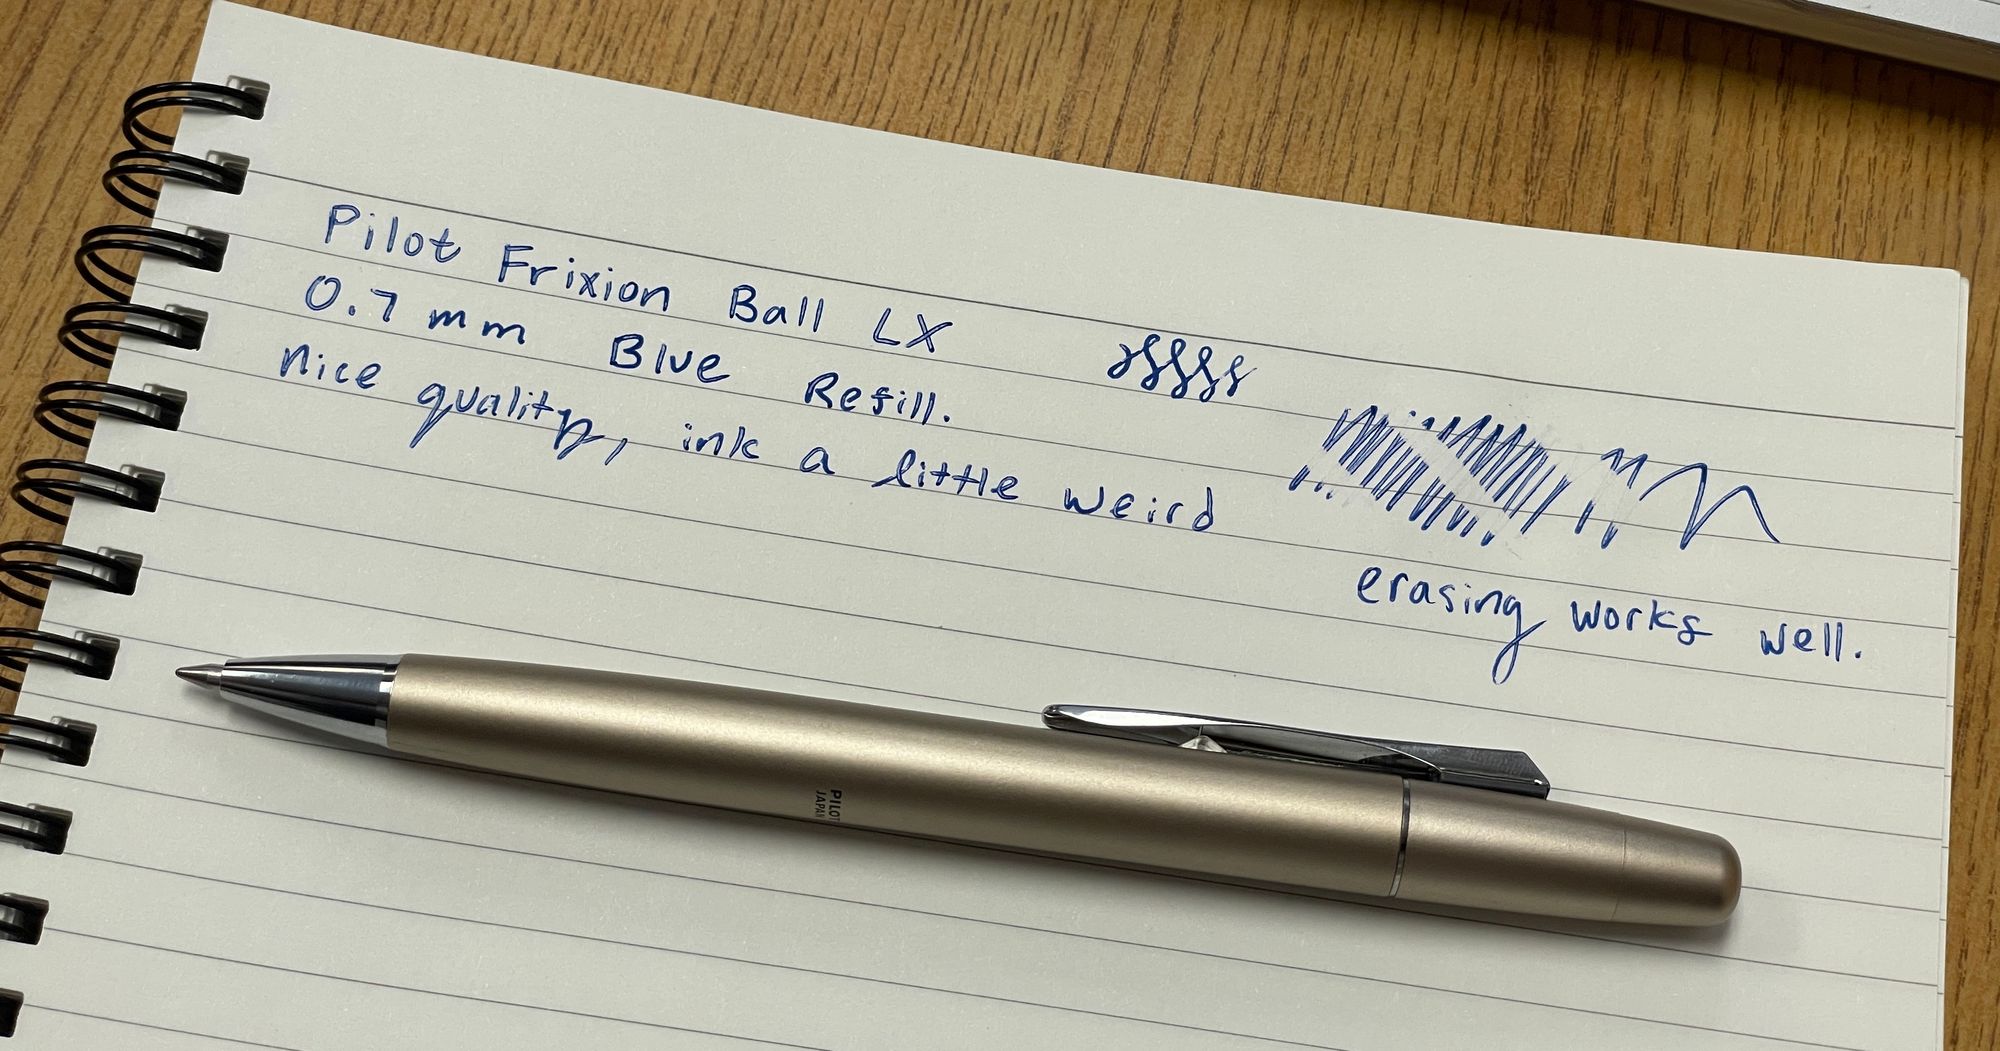 Pilot Frixion Ball LX
0.7 mm Blue Refill.
Nice quality, ink a little weird
erasing works well.
PILOT
JAPAN